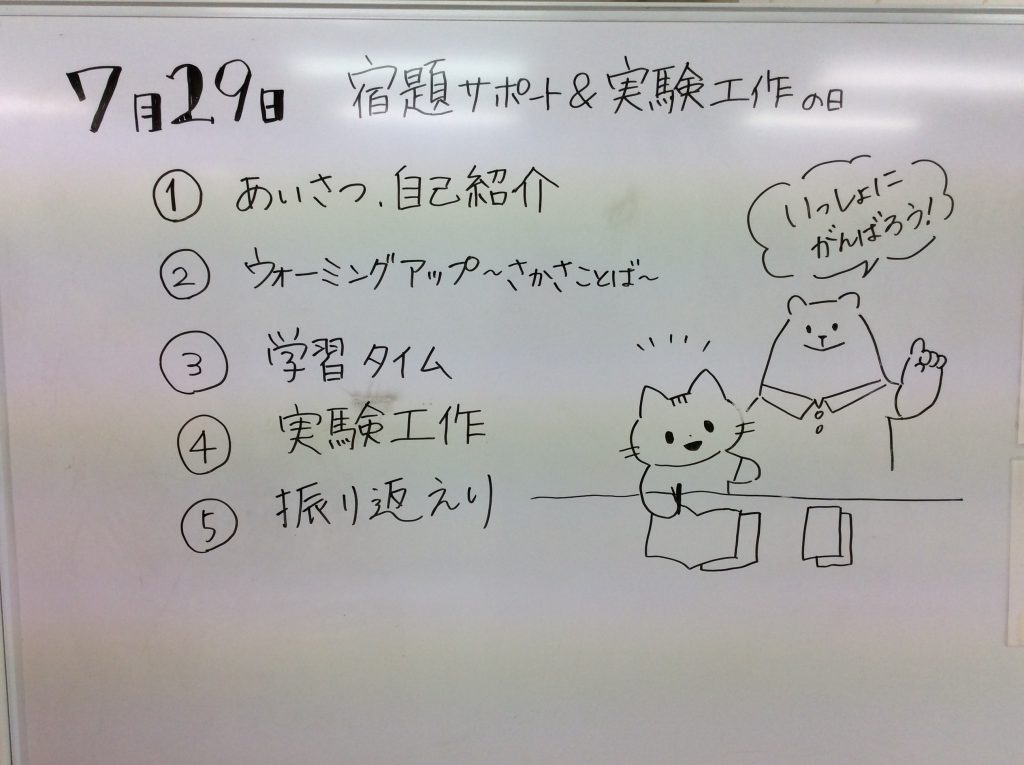 7月29日 宿題サポート&実験工作の日
① あいさつ、自己紹介
② ウォーミングアップ〜さかさことば〜
③ 学習タイム
④ 実験工作
⑤ 振り返えり
いっしょに
がんばろう!